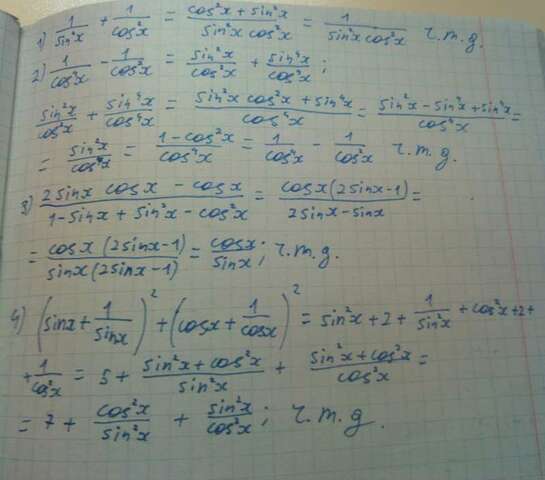 1) 1/sin²x + 1/cos²x = (cos²x + sin²x)/(sin²x cos²x) = 1/(sin²x cos²x) ч.т.д.
2) 1/cos⁴x - 1/cos²x = sin²x/cos²x + sin⁴x/cos⁴x ;
sin²x/cos²x + sin⁴x/cos⁴x = (sin²x cos²x + sin⁴x)/cos⁴x = (sin²x - sin⁴x + sin⁴x)/cos⁴x =
= sin²x/cos⁴x = (1 - cos²x)/cos⁴x = 1/cos⁴x - 1/cos²x ч.т.д.
3) (2 sinx cosx - cosx)/(1 - sinx + sin²x - cos²x) = cosx(2sinx-1)/(2sinx - sinx) =
= cosx(2sinx-1)/(sinx(2sinx-1)) = cosx/sinx ; ч.т.д.
4) (sinx + 1/sinx)² + (cosx + 1/cosx)² = sin²x + 2 + 1/sin²x + cos²x + 2 +
+ 1/cos²x = 5 + (sin²x + cos²x)/sin²x + (sin²x + cos²x)/cos²x =
= 7 + cos²x/sin²x + sin²x/cos²x ; ч.т.д.